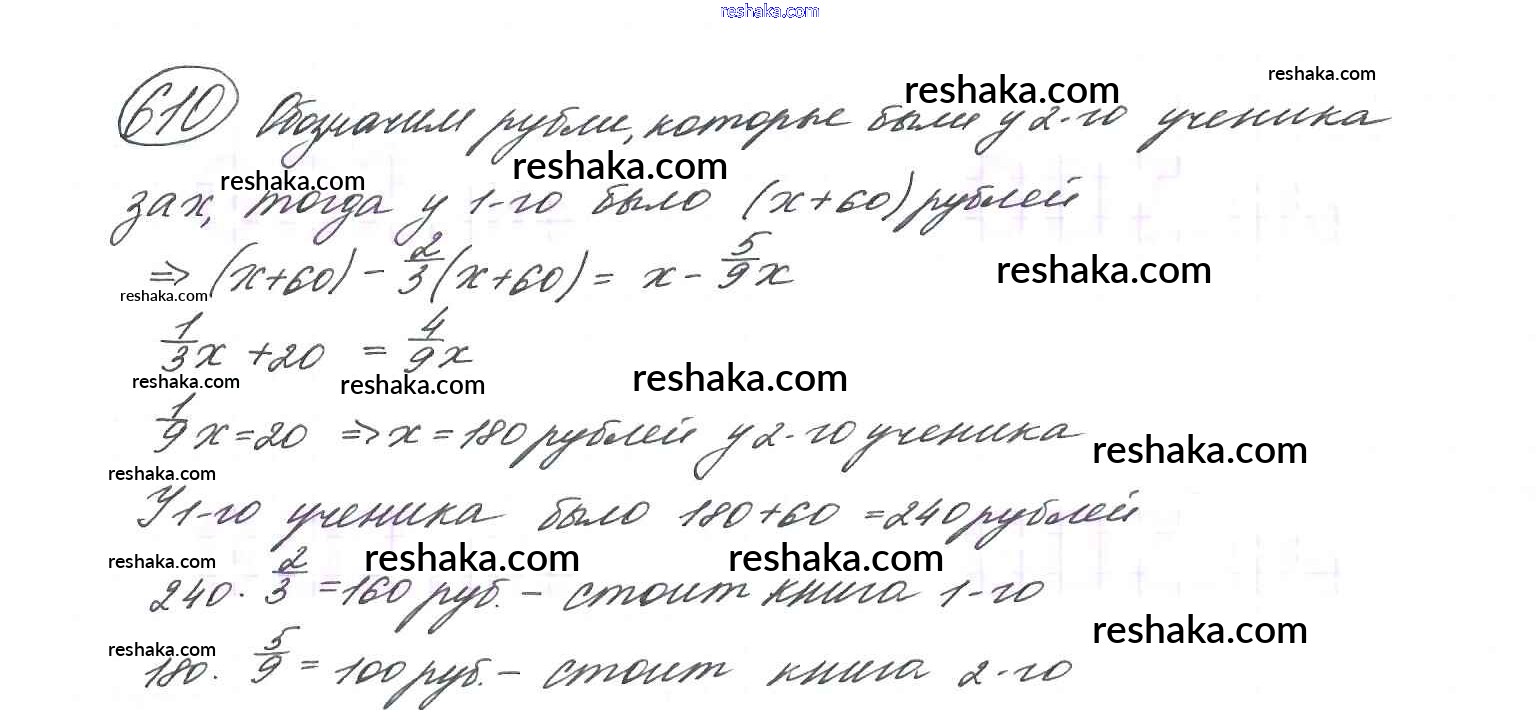 reshaka.com
610 Обозначим рубли, которые были у 2-го ученика
reshaka.com
reshaka.com
reshaka.com
reshaka.com
за x, тогда у 1-го было (x+60) рублей
⇒ (x+60) - 2/3 (x+60) = x - 5/9 x
reshaka.com
reshaka.com
1/3 x + 20 = 4/9 x
reshaka.com
reshaka.com
reshaka.com
1/9 x = 20 ⇒ x = 180 рублей у 2-го ученика
reshaka.com
reshaka.com
У 1-го ученика было 180+60 = 240 рублей
reshaka.com
reshaka.com
reshaka.com
240 · 2/3 = 160 руб. - стоит книга 1-го
reshaka.com
reshaka.com
180 · 5/9 = 100 руб. - стоит книга 2-го